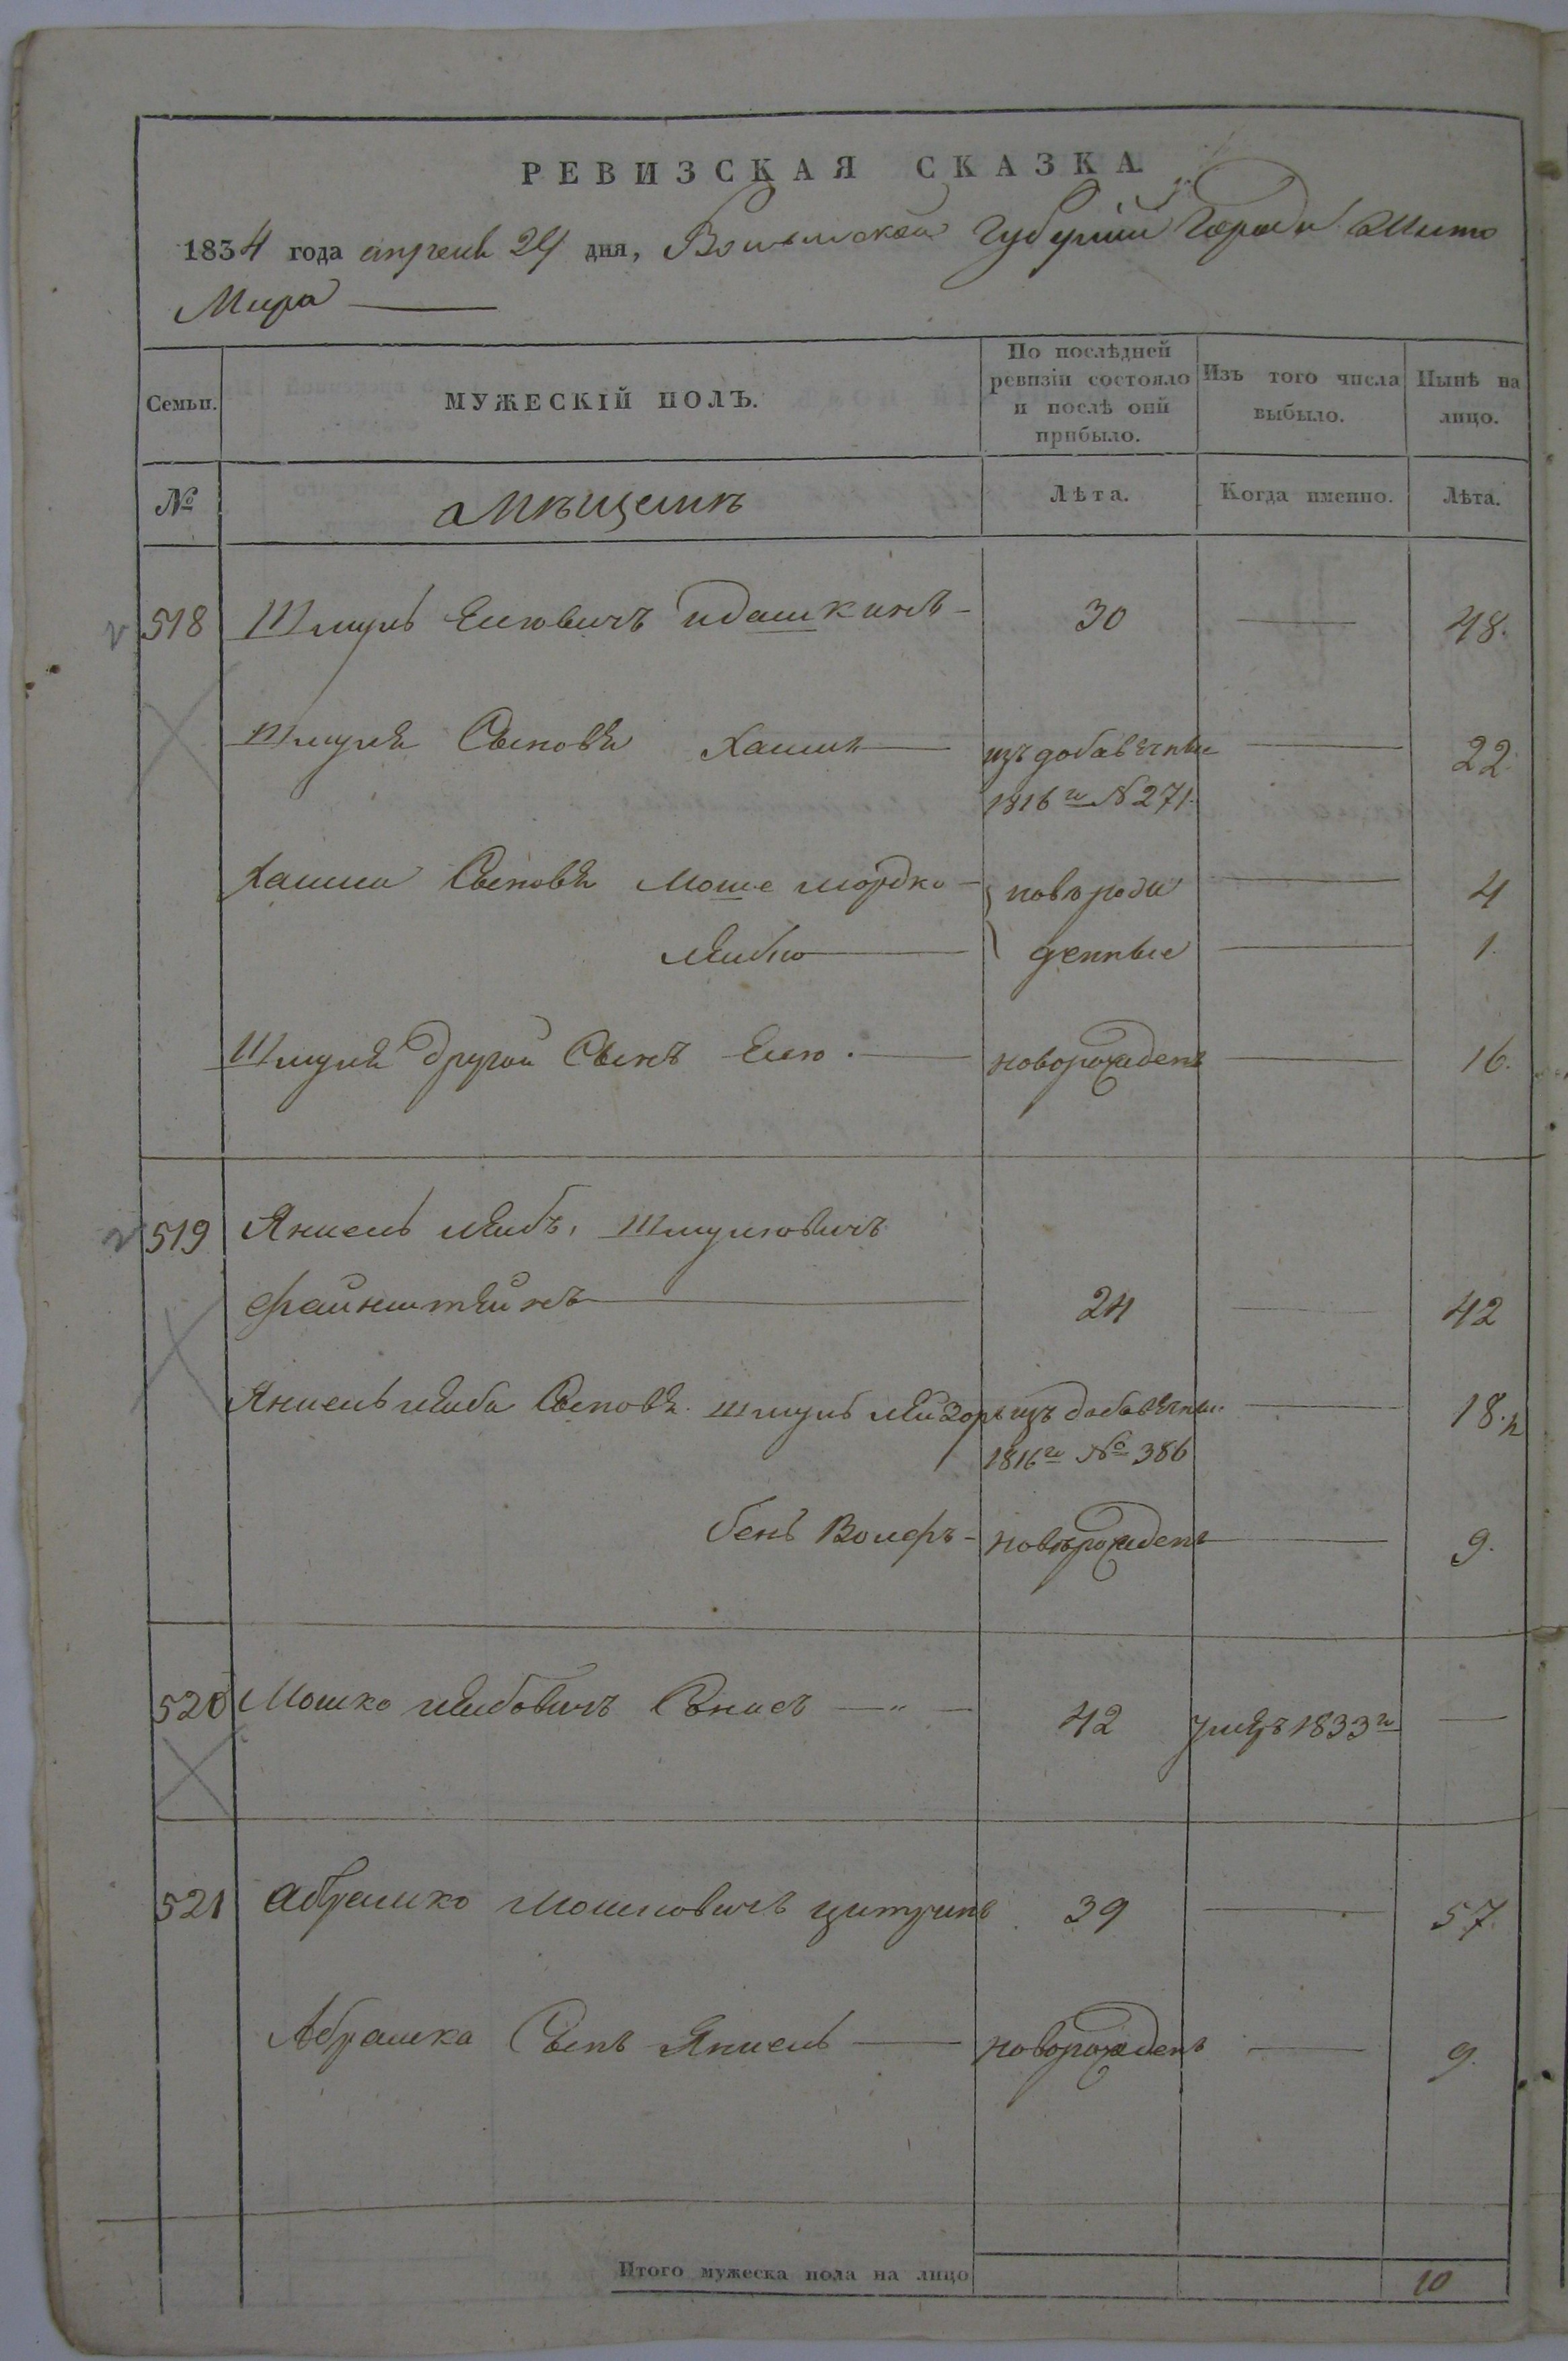 РЕВИЗСКАЯ СКАЗКА.
1834 года апреля 24 дня, Волынской Губерніи Города Жито
Мира
Семьи.
МУЖЕСКІЙ ПОЛЪ.
По послѣдней ревизіи состояло и послѣ оній прибыло.
Изъ того числа выбыло.
Нынѣ на лицо.
№ Мѣщанъ Лѣта. Когда именно. Лѣта.
518 Шмуль Елювичъ идашкинъ 30 48.
Шмуля Сыновья Хаимъ изъ добавочны 22
1816го N 271.
Хаима Сыновья Моше мордко новорож 4
Лейбю денные 1.
Шмуля другой Сынъ Елю. новорожденъ 16.
519 Янкель Лейбъ, Шмулювичъ
файнштейнъ 24 42
Янкель лейба Сыновья. шмуль лейзоръ изъ добавочны 18.
1816го № 386
бенъ Волфъ новорожденъ 9.
520 Мошко лейбовичъ 42 умеръ 1833го
521 Абрамко Мошковичъ цитринъ 39 57.
Абрамка Сынъ Янкель новорожденъ 9.
Итого мужеска пола на лицо 10